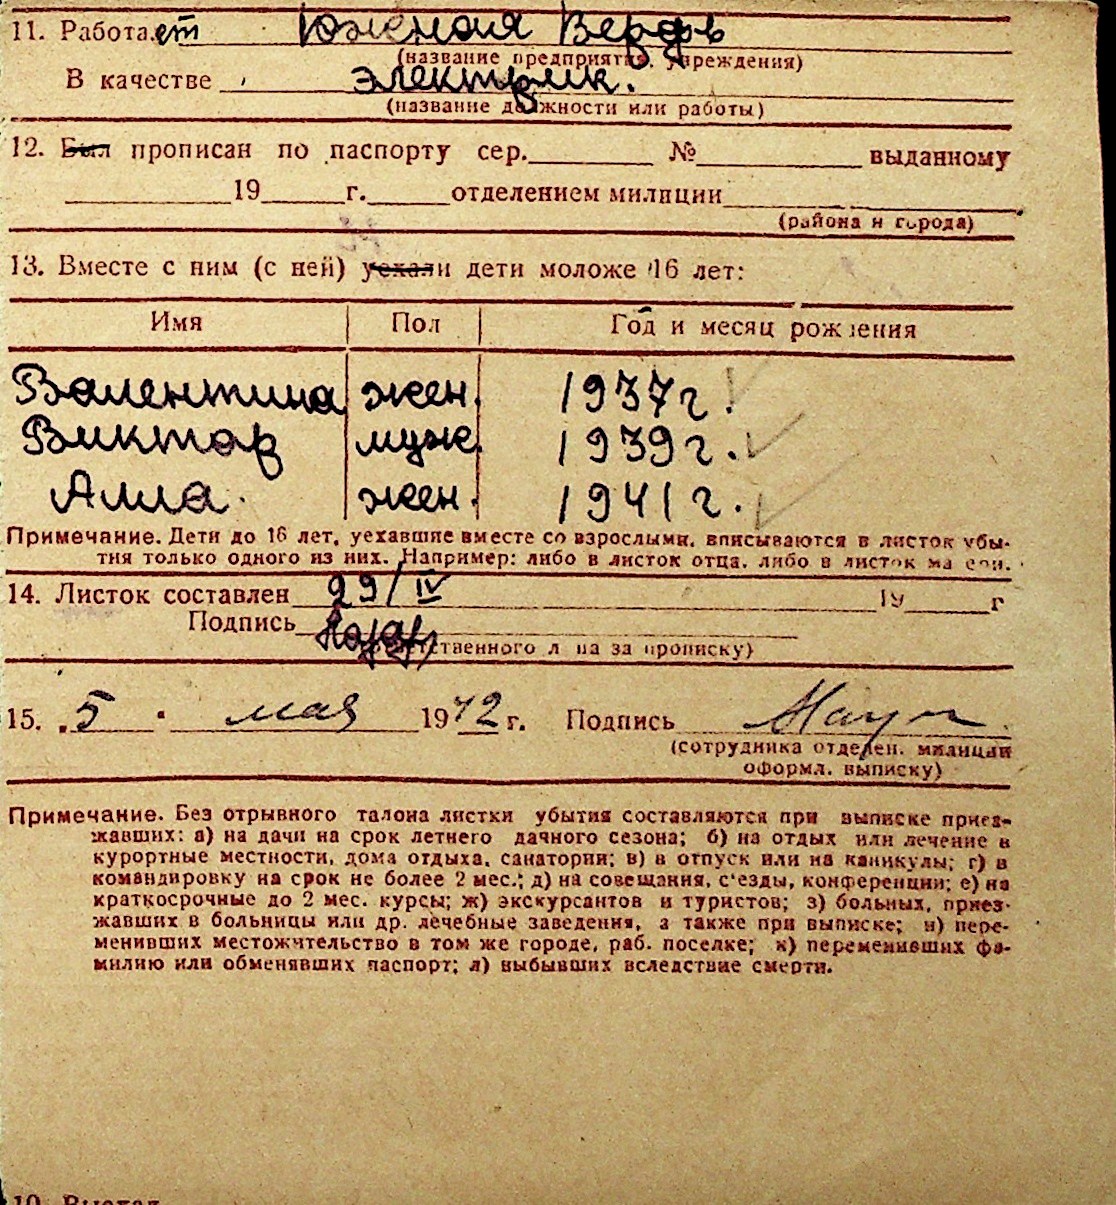 11. Работает Южная Верфь
(название предприятия, учреждения)
В качестве электрик.
(название должности или работы)
12. Был прописан по паспорту сер. № выданному
19 г. отделением милиции
(района и города)
13. Вместе с ним (с ней) уехали дети моложе 16 лет:
Имя Пол Год и месяц рождения
Валентина жен. 1937 г.
Виктор муж. 1939 г.
Алла. жен. 1941 г.
Примечание. Дети до 16 лет, уехавшие вместе со взрослыми, вписываются в листок убы-
тия только одного из них. Например: либо в листок отца, либо в листок матери.
14. Листок составлен 29/IV 19 г
Подпись
(ответственного лица за прописку)
15. 5 мая 1942 г. Подпись
(сотрудника отделен. милиции
оформл. выписку)
Примечание. Без отрывного талона листки убытия составляются при выписке приез-
жавших: а) на дачи на срок летнего дачного сезона; б) на отдых или лечение в
курортные местности, дома отдыха, санатории; в) в отпуск или на каникулы; г) в
командировку на срок не более 2 мес.; д) на совещания, с'езды, конференции; е) на
краткосрочные до 2 мес. курсы; ж) экскурсантов и туристов; з) больных, приез-
жавших в больницы или др. лечебные заведения, а также при выписке; и) пере-
менивших местожительство в том же городе, раб. поселке; к) переменивших фа-
милию или обменявших паспорт; л) выбывших вследствие смерти.
10. Выехал